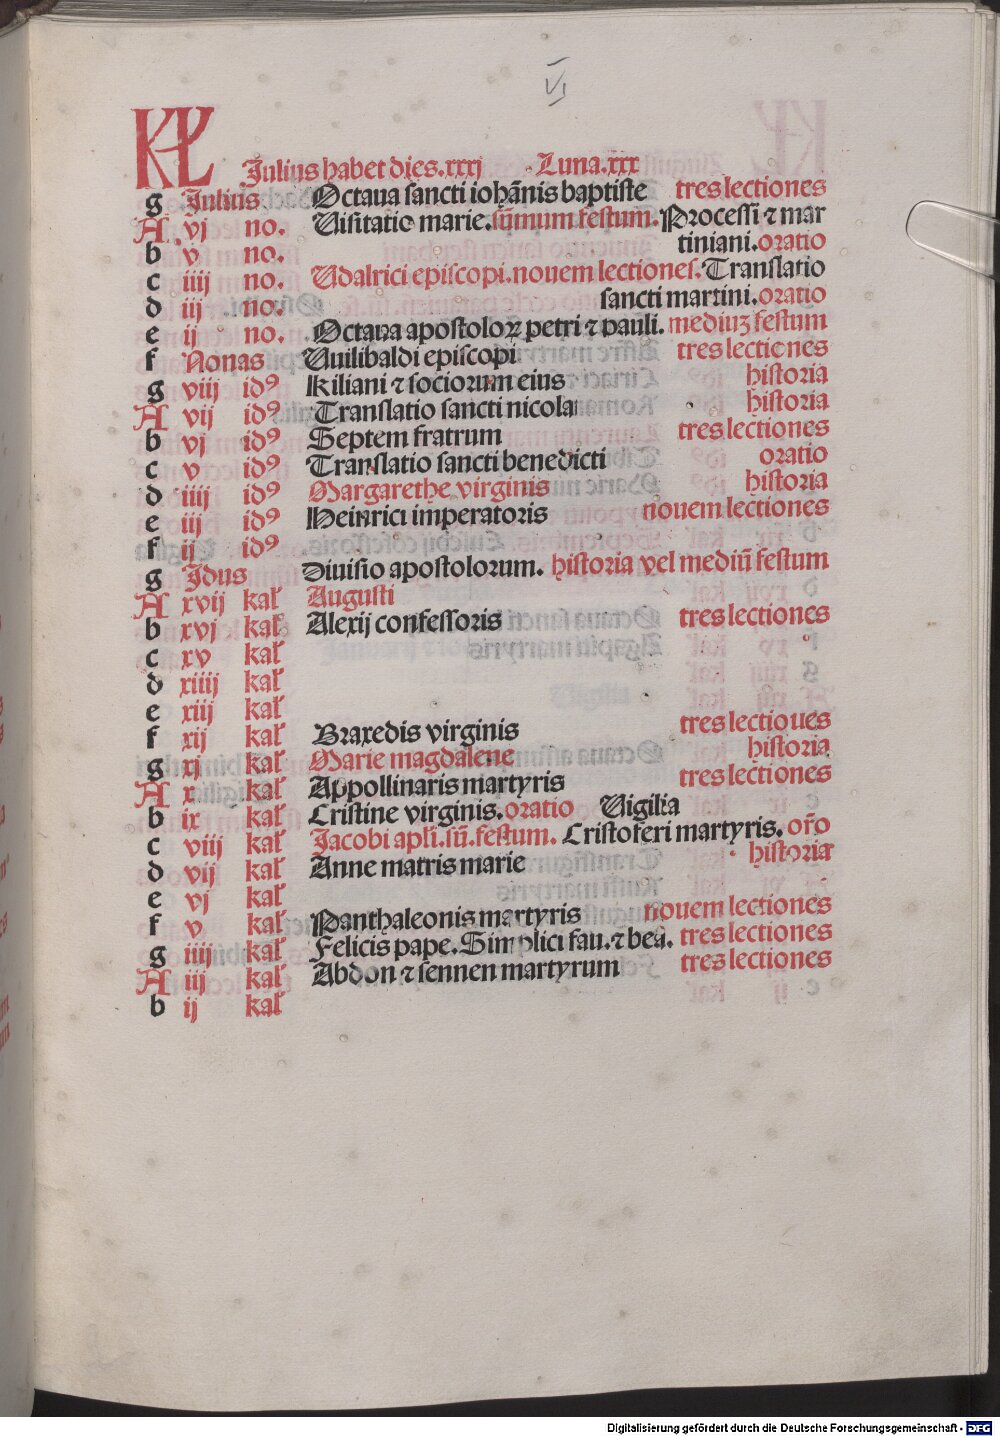 VI
KL Julius habet dies.xxxj Luna.xxx
g Julius Octaua sancti ioh̄anis baptiste tres lectiones
A vj no. Uisitatio marie.sūmum festum.Processi ⁊ mar
b v no. tiniani.oratio
c iiij no. Udalrici episcopi.nouem lectiones.Translatio
d iij no. sancti martini.oratio
e ij no. Octaua apostoloꝝ petri ⁊ pauli.mediuꝫ festum
f Nonas Vuilibaldi episcopi tres lectiones
g viij idꝰ Kiliani ⁊ sociorum eius historia
A vij idꝰ Translatio sancti nicolai historia
b vj idꝰ Septem fratrum tres lectiones
c v idꝰ Translatio sancti benedicti oratio
d iiij idꝰ Margarethe virginis historia
e iij idꝰ Heinrici imperatoris nouem lectiones
f ij idꝰ
g Jdus Diuisio apostolorum. historia vel mediū festum
A xvij kal̄ Augusti
b xvj kal̄ Alexij confessoris tres lectiones
c xv kal̄
d xiiij kal̄
e xiij kal̄
f xij kal̄ Braxedis virginis tres lectioues
g xj kal̄ Marie magdalene historia
A x kal̄ Appollinaris martyris tres lectiones
b ix kal̄ Cristine virginis.oratio Vigilia
c viij kal̄ Jacobi apl̄i.sū.festum. Cristoferi martyris.or̄o
d vij kal̄ Anne matris marie historia
e vj kal̄
f v kal̄ Panthaleonis martyris nouem lectiones
g iiij kal̄ Felicis pape.Simplici fau.⁊ bea. tres lectiones
A iij kal̄ Abdon ⁊ sennen martyrum tres lectiones
b ij kal̄
Digitalisierung gefördert durch die Deutsche Forschungsgemeinschaft - DFG